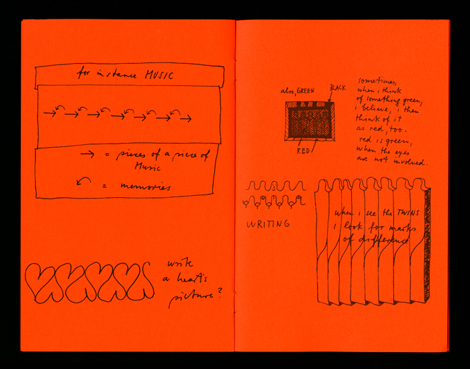 for instance MUSIC
→ = pieces of a piece of
Music
= memories
write
a heart's
picture?
also, GREEN
BLACK
RED
sometimes,
when i think
of something green,
i believe, i then
think of it
as red, too.
red is green,
when the eyes
are not involved.
WRITING
when i see the TWINS
i look for marks
of difference